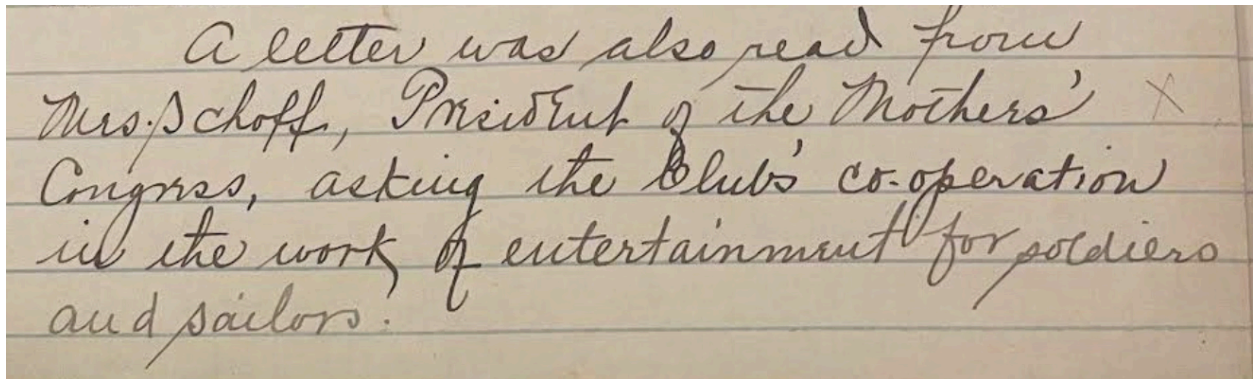 A letter was also read from
Mrs. Schoff, President of the Mothers' X
Congress, asking the Club's co-operation
in the work of entertainment for soldiers
and sailors.